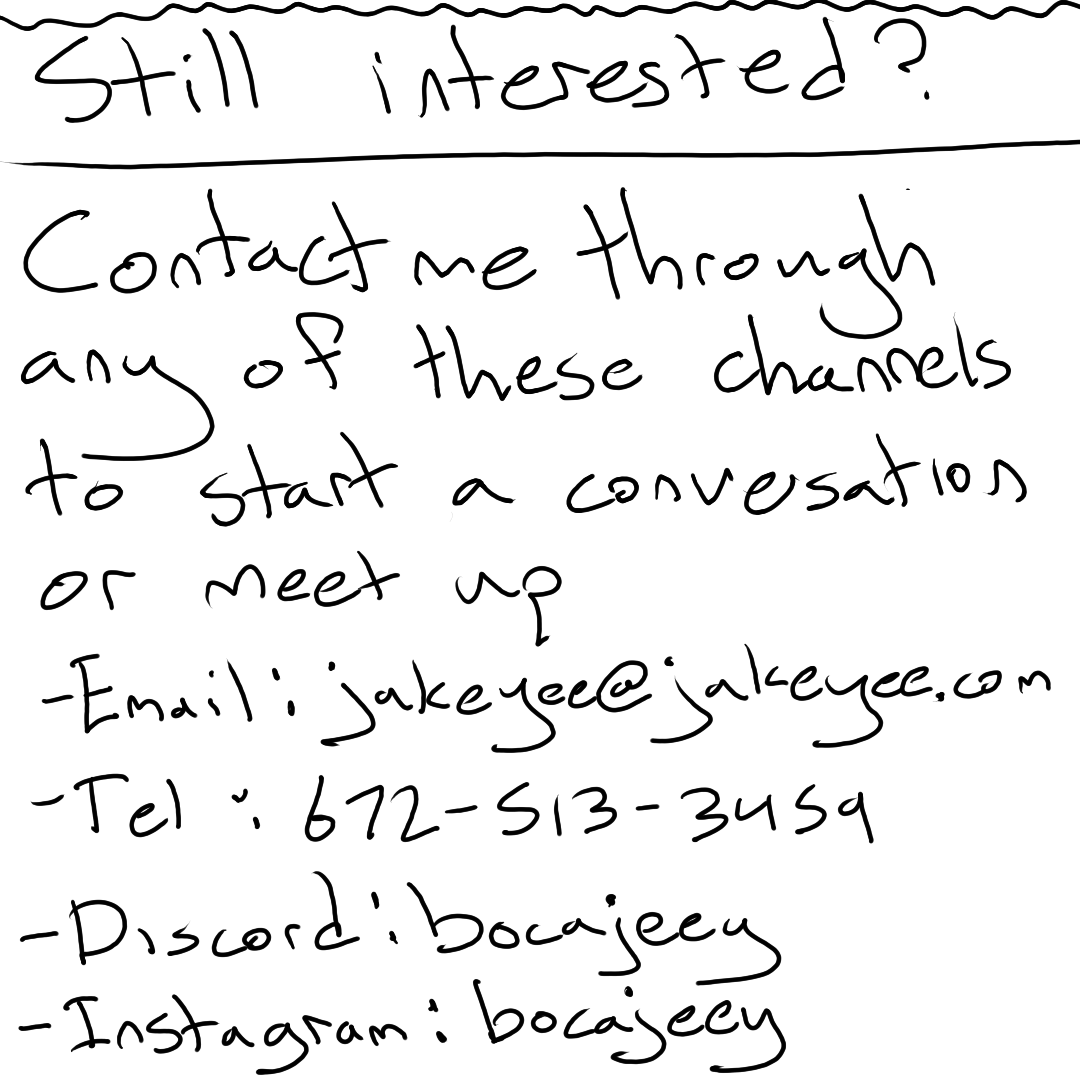 Still interested?
Contact me through
any of these channels
to start a conversation
or meet up
-Email: jakeyee@jakeyee.com
-Tel: 672-513-3459
-Discord: bocajeey
-Instagram: bocajeey